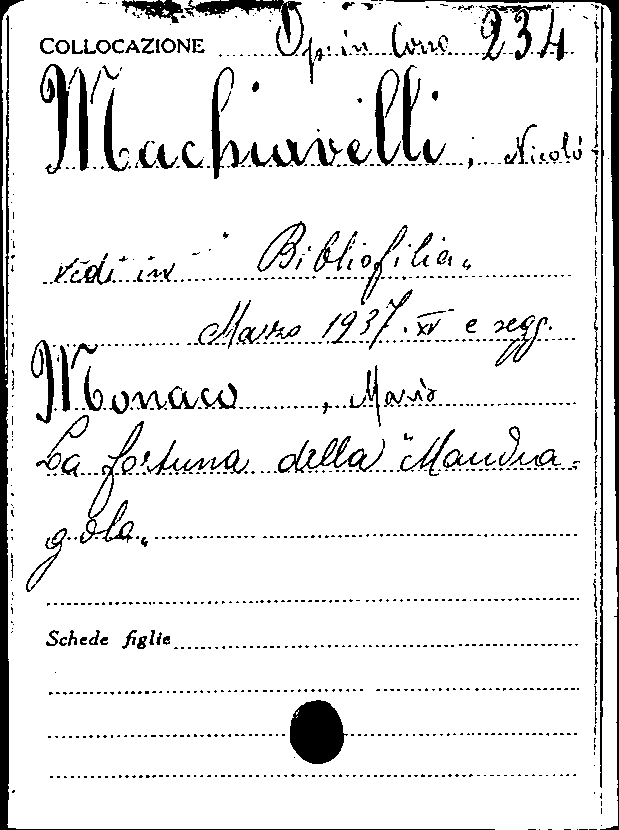 COLLOCAZIONE Op. in Corso 234
Machiavelli, Nicolò
vedi in "Bibliofilia„
Marzo 1937.XV e segg.
Monaco, Mario
La fortuna della "Mandra-
gola„
Schede figlie